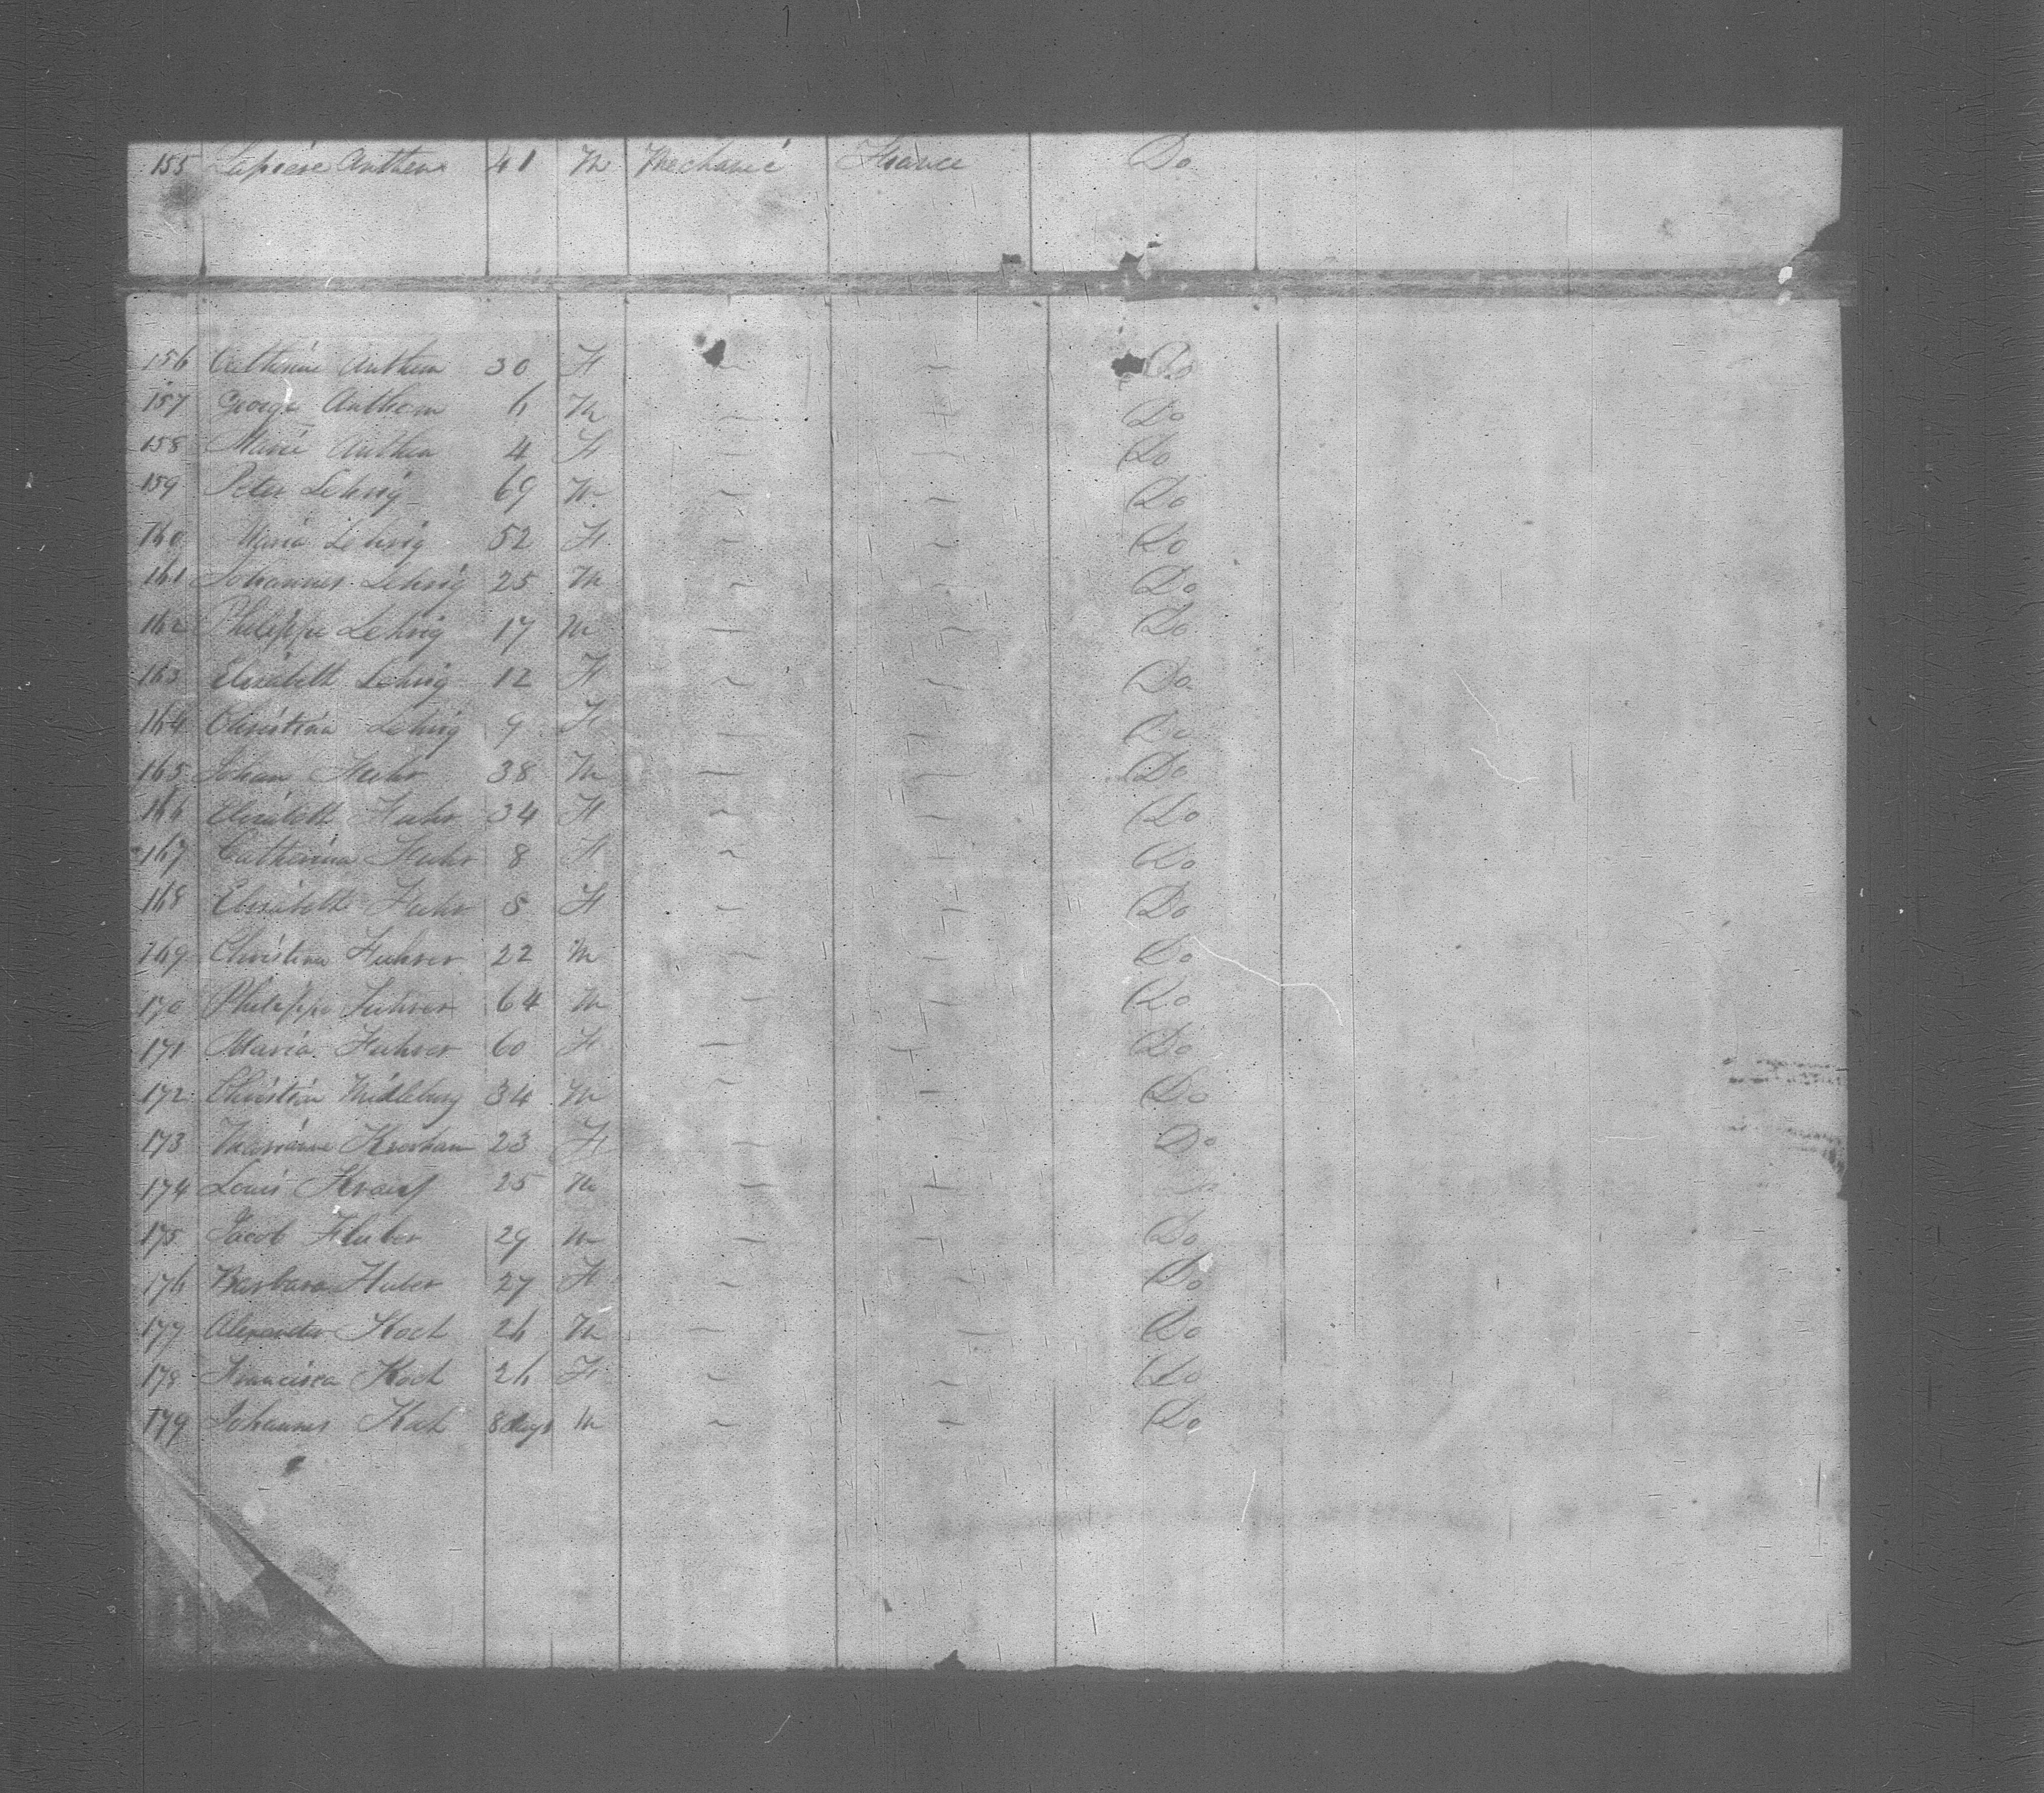 155 Lapiere Anthem 41 M Mechanic France Do
156 Catherine Anthem 30 F — — Do
157 George Anthem 6 M — — Do
158 Marie Anthem 4 F — — Do
159 Peter Lehrig 69 M — — Do
160 Maria Lehrig 52 F — — Do
161 Johannes Lehrig 25 M — — Do
162 Philippe Lehrig 17 M — — Do
163 Elisabeth Lehrig 12 F — — Do
164 Christina Lehrig 9 F — — Do
165 Johan Fuhr 38 M — — Do
166 Elisabeth Fuhr 34 F — — Do
167 Catherina Fuhr 8 F — — Do
168 Elisabeth Fuhr 5 F — — Do
169 Christina Fuhrer 22 M — — Do
170 Philippe Fuhrer 64 M — — Do
171 Maria Fuhrer 60 F — — Do
172 Christian Midleburg 34 M — — Do
173 23 F — — Do
174 Louis 25 M — — Do
175 Jacob Huber 29 M — — Do
176 Barbara Huber 27 F — — Do
177 Alexander Koch 26 M — — Do
178 Francisca Koch 26 F — — Do
179 Johannes Koch 8 days M — — Do